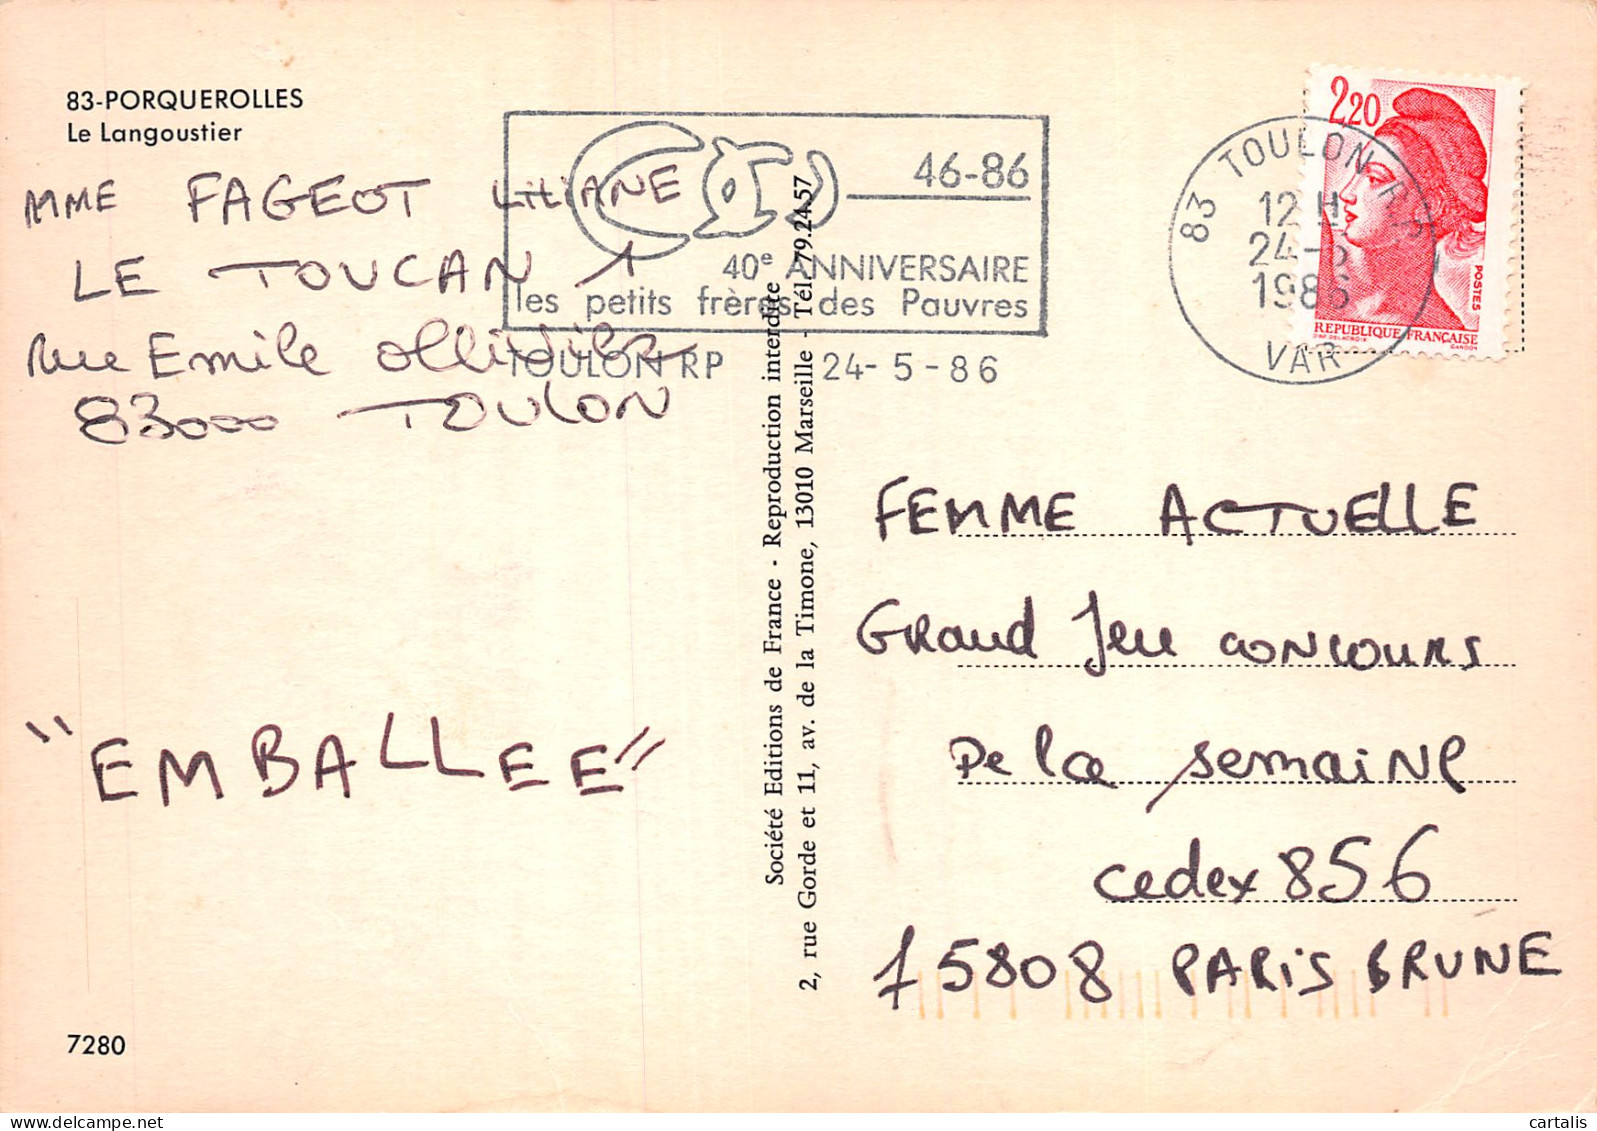 83-PORQUEROLLES
Le Langoustier
MME FAGEOT LiLiANE
LE TOUCAN 1
rue Emile Ollivier
83000 TOULON
"EMBALLEE"
7280
46-86
40e ANNIVERSAIRE
les petits frères des Pauvres
TOULON RP 24-5-86
Société Editions de France - Reproduction interdite
2, rue Gorde et 11, av. de la Timone, 13010 Marseille - Tél. 79.24.57
83 TOULON R.P.
12 H
24-5
1986
VAR
2,20
POSTES
REPUBLIQUE FRANÇAISE
FEMME ACTUELLE
GRAND Jeu CONCOURS
De la semaiNe
cedex 856
75808 PARiS BRUNE
cartalis